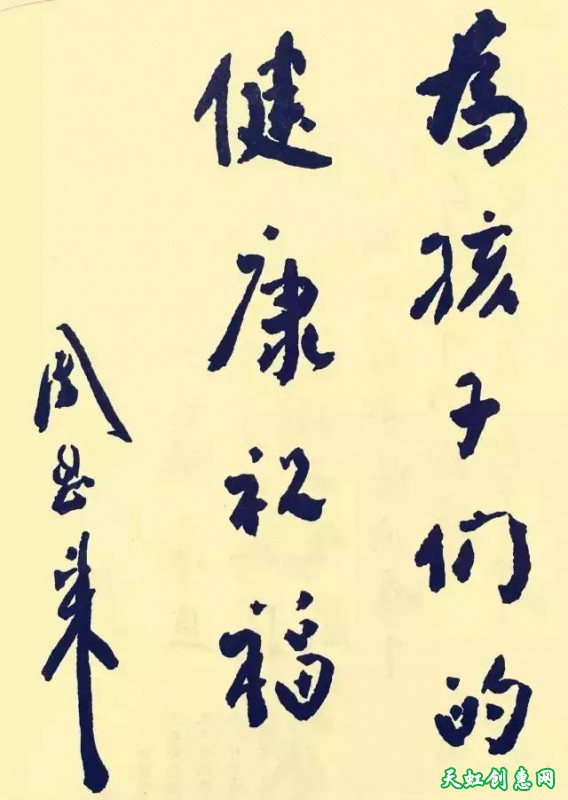 為孩子们的
健康祝福
周恩来
天虹创惠网